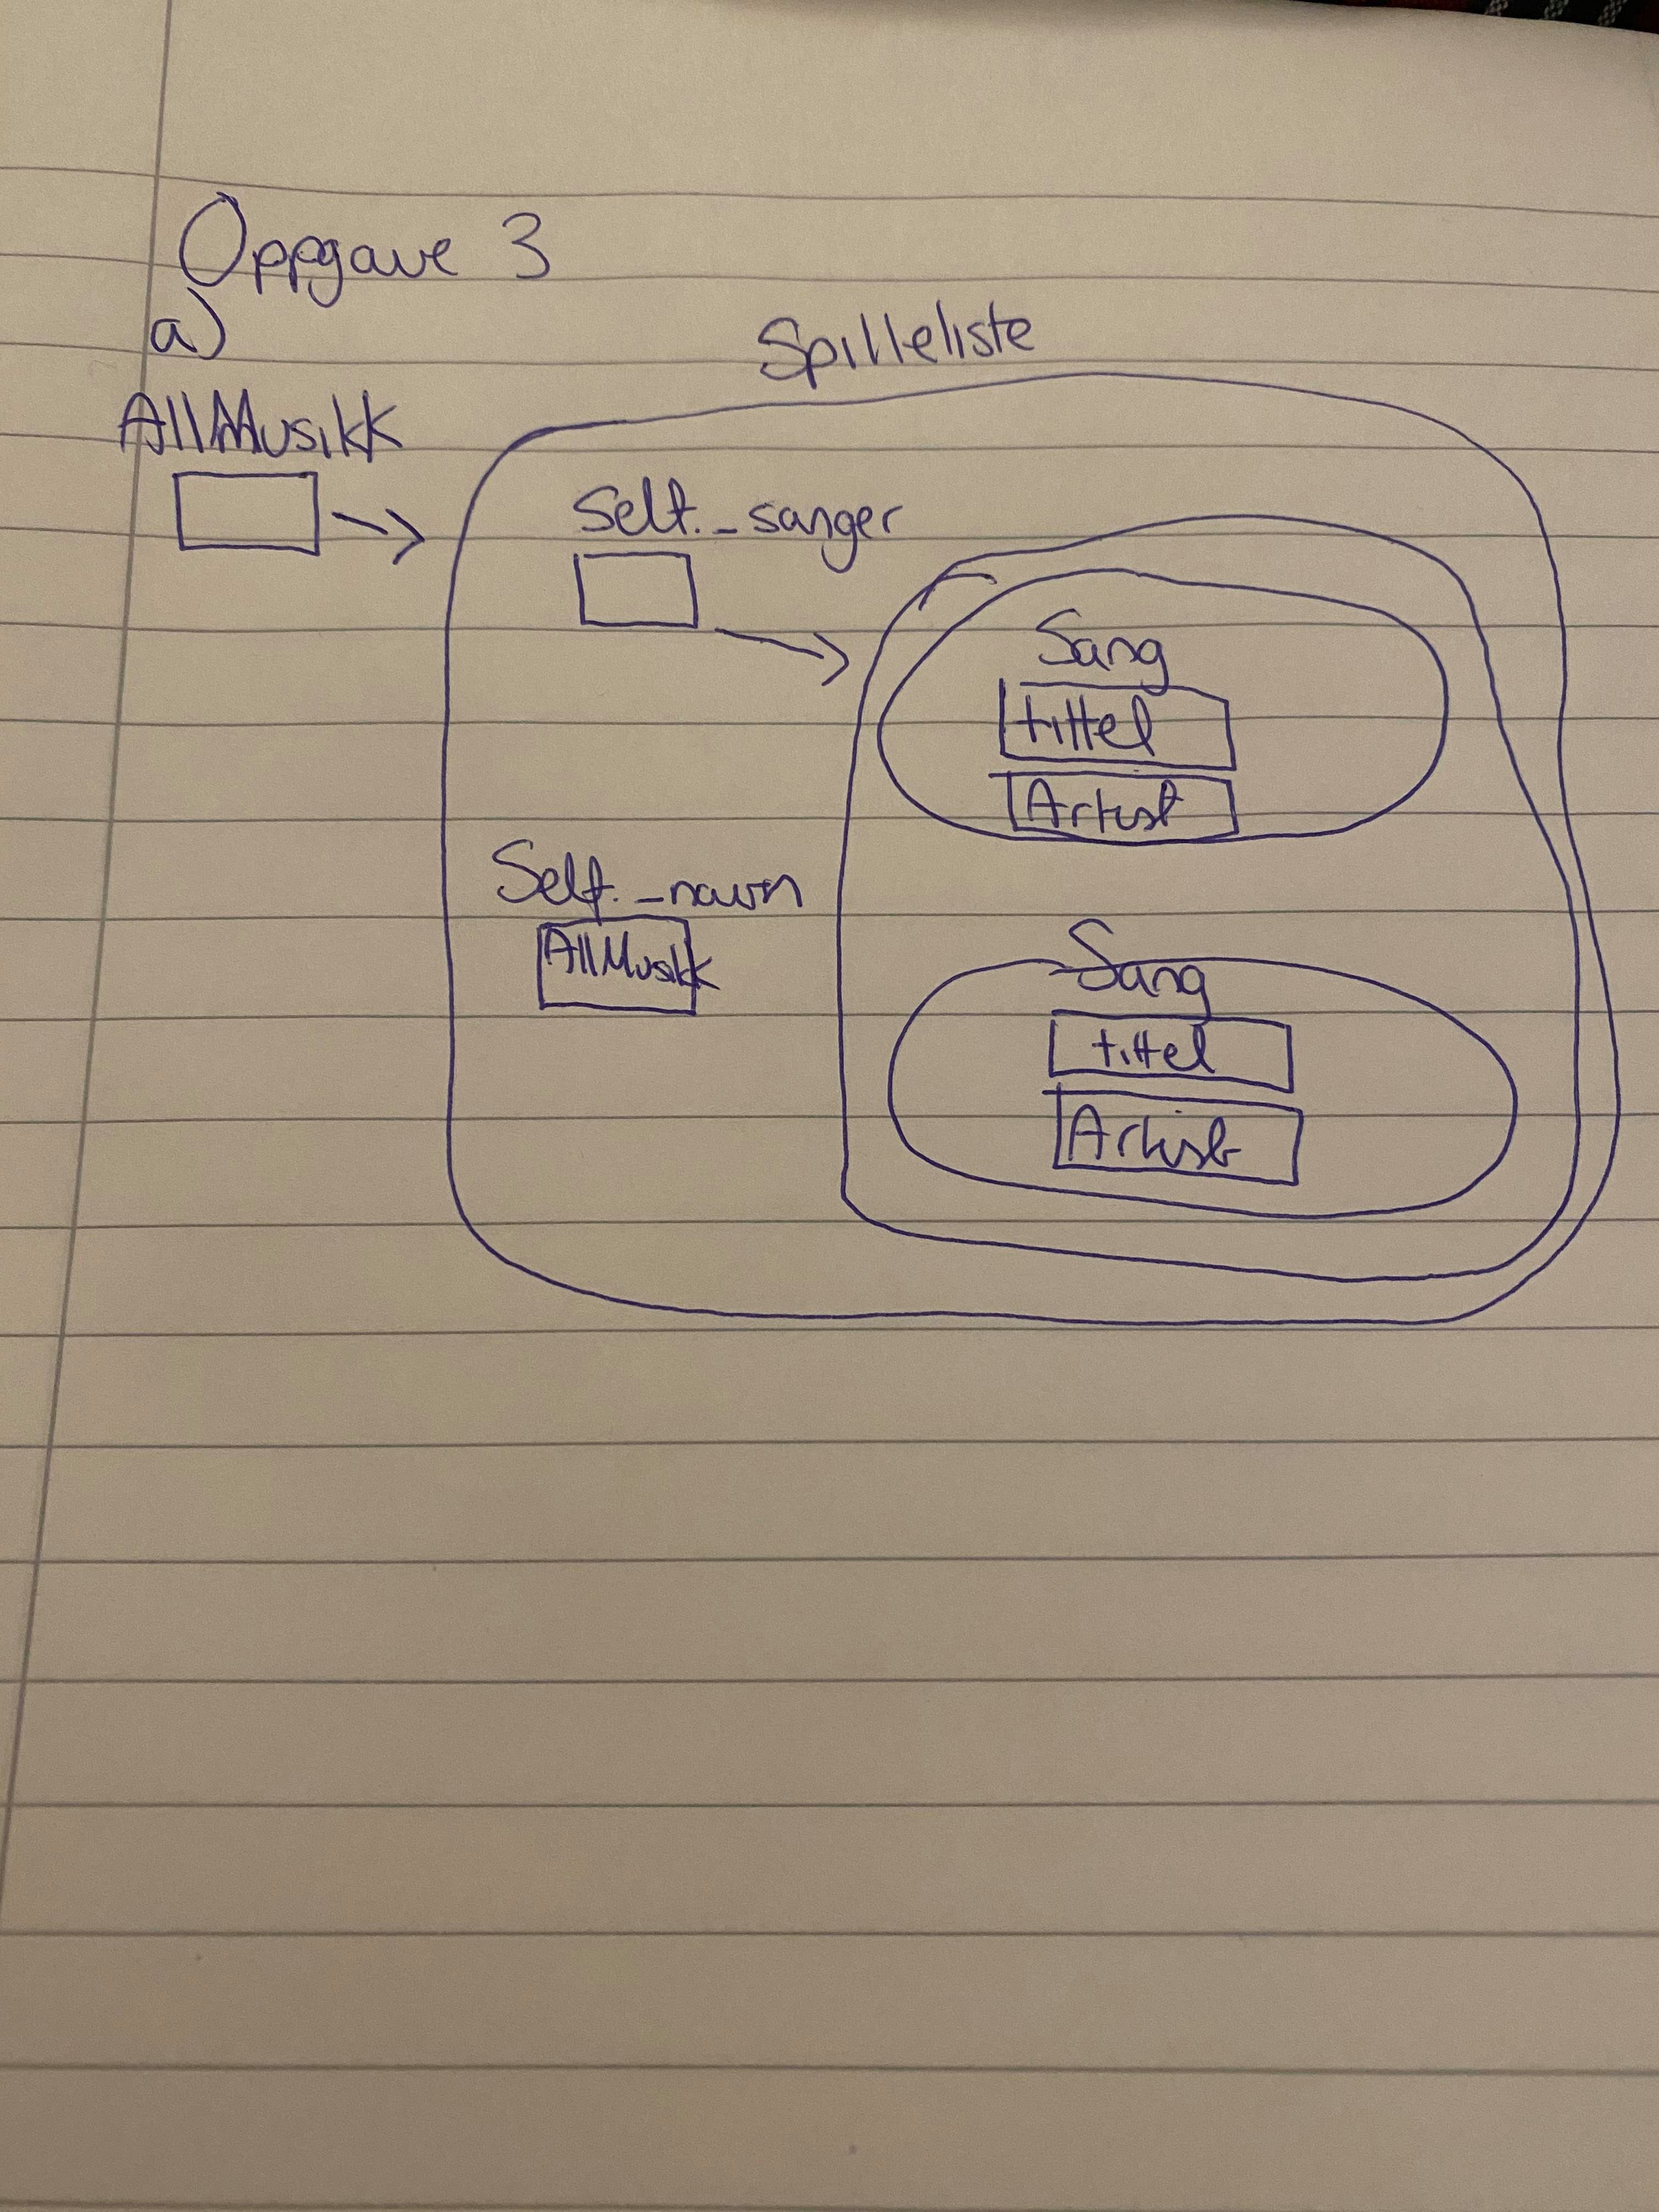 Oppgave 3
a)
Spilleliste
AllMusikk
Self._sanger
Sang
tittel
Artist
Self._navn
AllMusikk
Sang
tittel
Artist